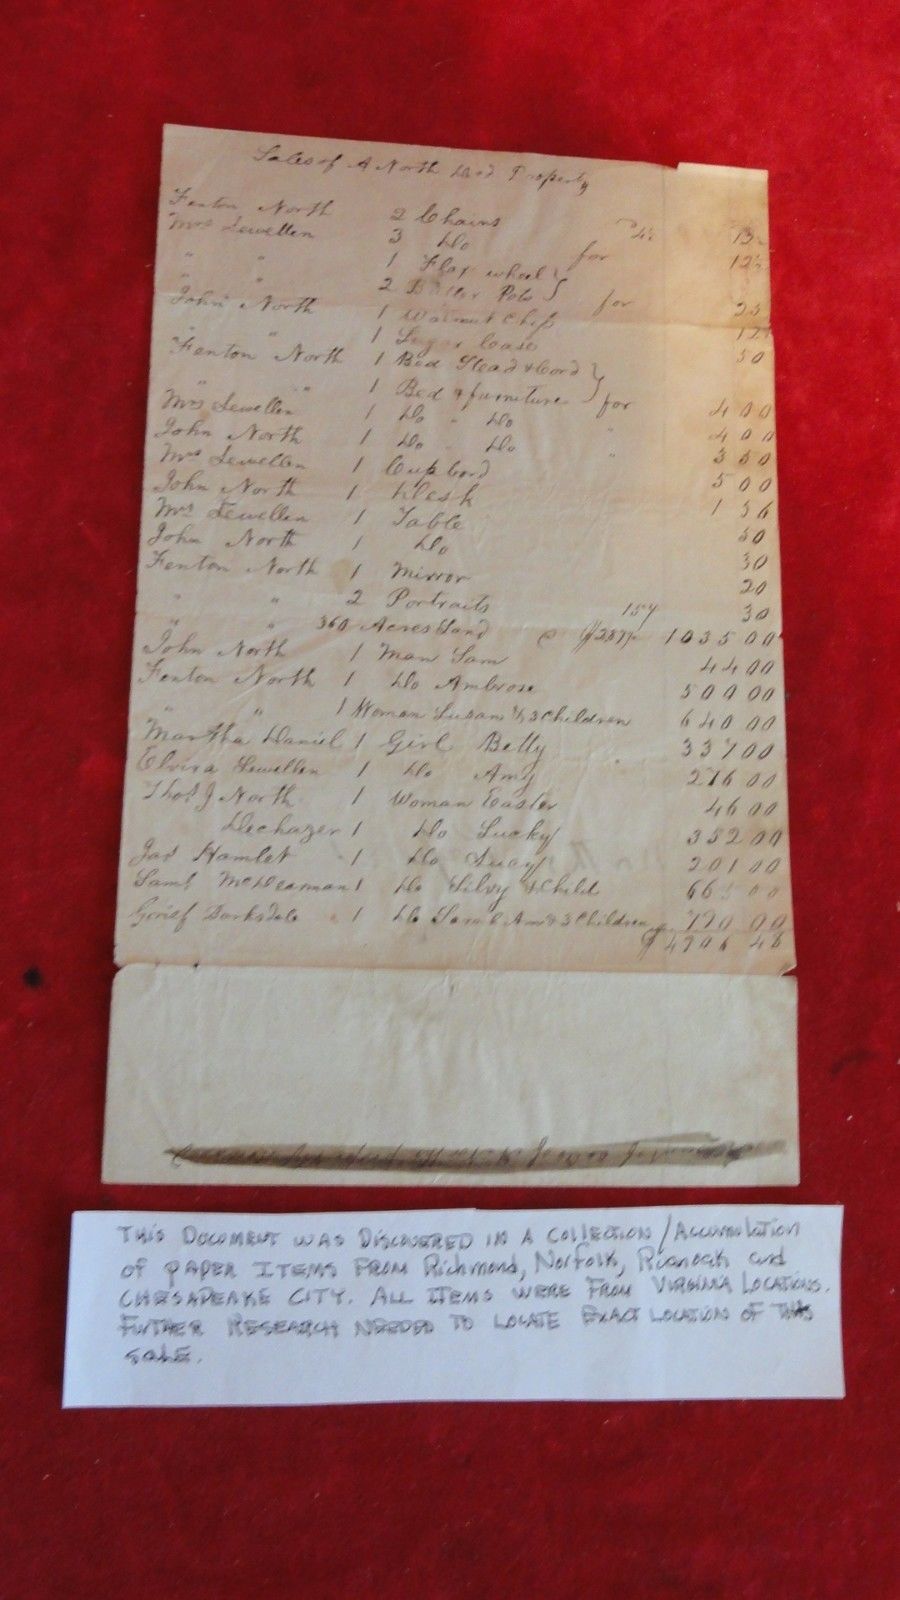 Sales of A North Decd Property
Fenton North 2 Chairs 13
Mrs Lewellen 3 Do for 12½
" " 1 Flax wheel
" " 2 Butter Pots for 25
John North 1 Walnut Chest 12½
" " 1 Case 50
Fenton North 1 Bed Stead & Cord
" " 1 Bed & furniture for 4 00
Mrs Lewellen 1 Do " Do " 4 00
John North 1 Do " Do " 3 50
Mrs Lewellen 1 Cupbord 5 00
John North 1 Desk 1 56
Mrs Lewellen 1 Table 50
John North 1 Do 30
Fenton North 1 Mirror 20
" " 2 Portraits 30
" " 360 Acres Land @ 1035 00
John North 1 Man Sam 44 00
Fenton North 1 Do Ambrose 500 00
" " 1 Woman Susan & 3 Children 640 00
Martha Daniel 1 Girl Betty 337 00
Elvira Lewellen 1 Do Amy 216 00
Thos J North 1 Woman Easter 46 00
Dechazer 1 Do Lucky 352 00
Jas Hamlet 1 Do 201 00
Saml McDearman 1 Do Silvy & Child 00
Grief Barksdale 1 Do Sarah Ann & 3 Children 770 00
$ 4706 46
THIS DOCUMENT WAS DISCOVERED IN A COLLECTION/ACCUMULATION
OF PAPER ITEMS FROM Richmond, Norfolk, Roanoak and
CHESAPEAKE CITY. ALL ITEMS WERE FROM VIRGINIA LOCATIONS.
FURTHER RESEARCH NEEDED TO LOCATE EXACT LOCATION OF THIS
SALE.